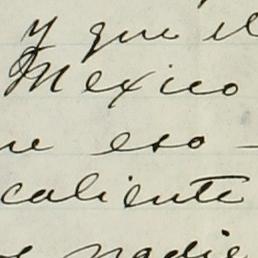 y que el
Mexico
ue eso -
caliente
nadie